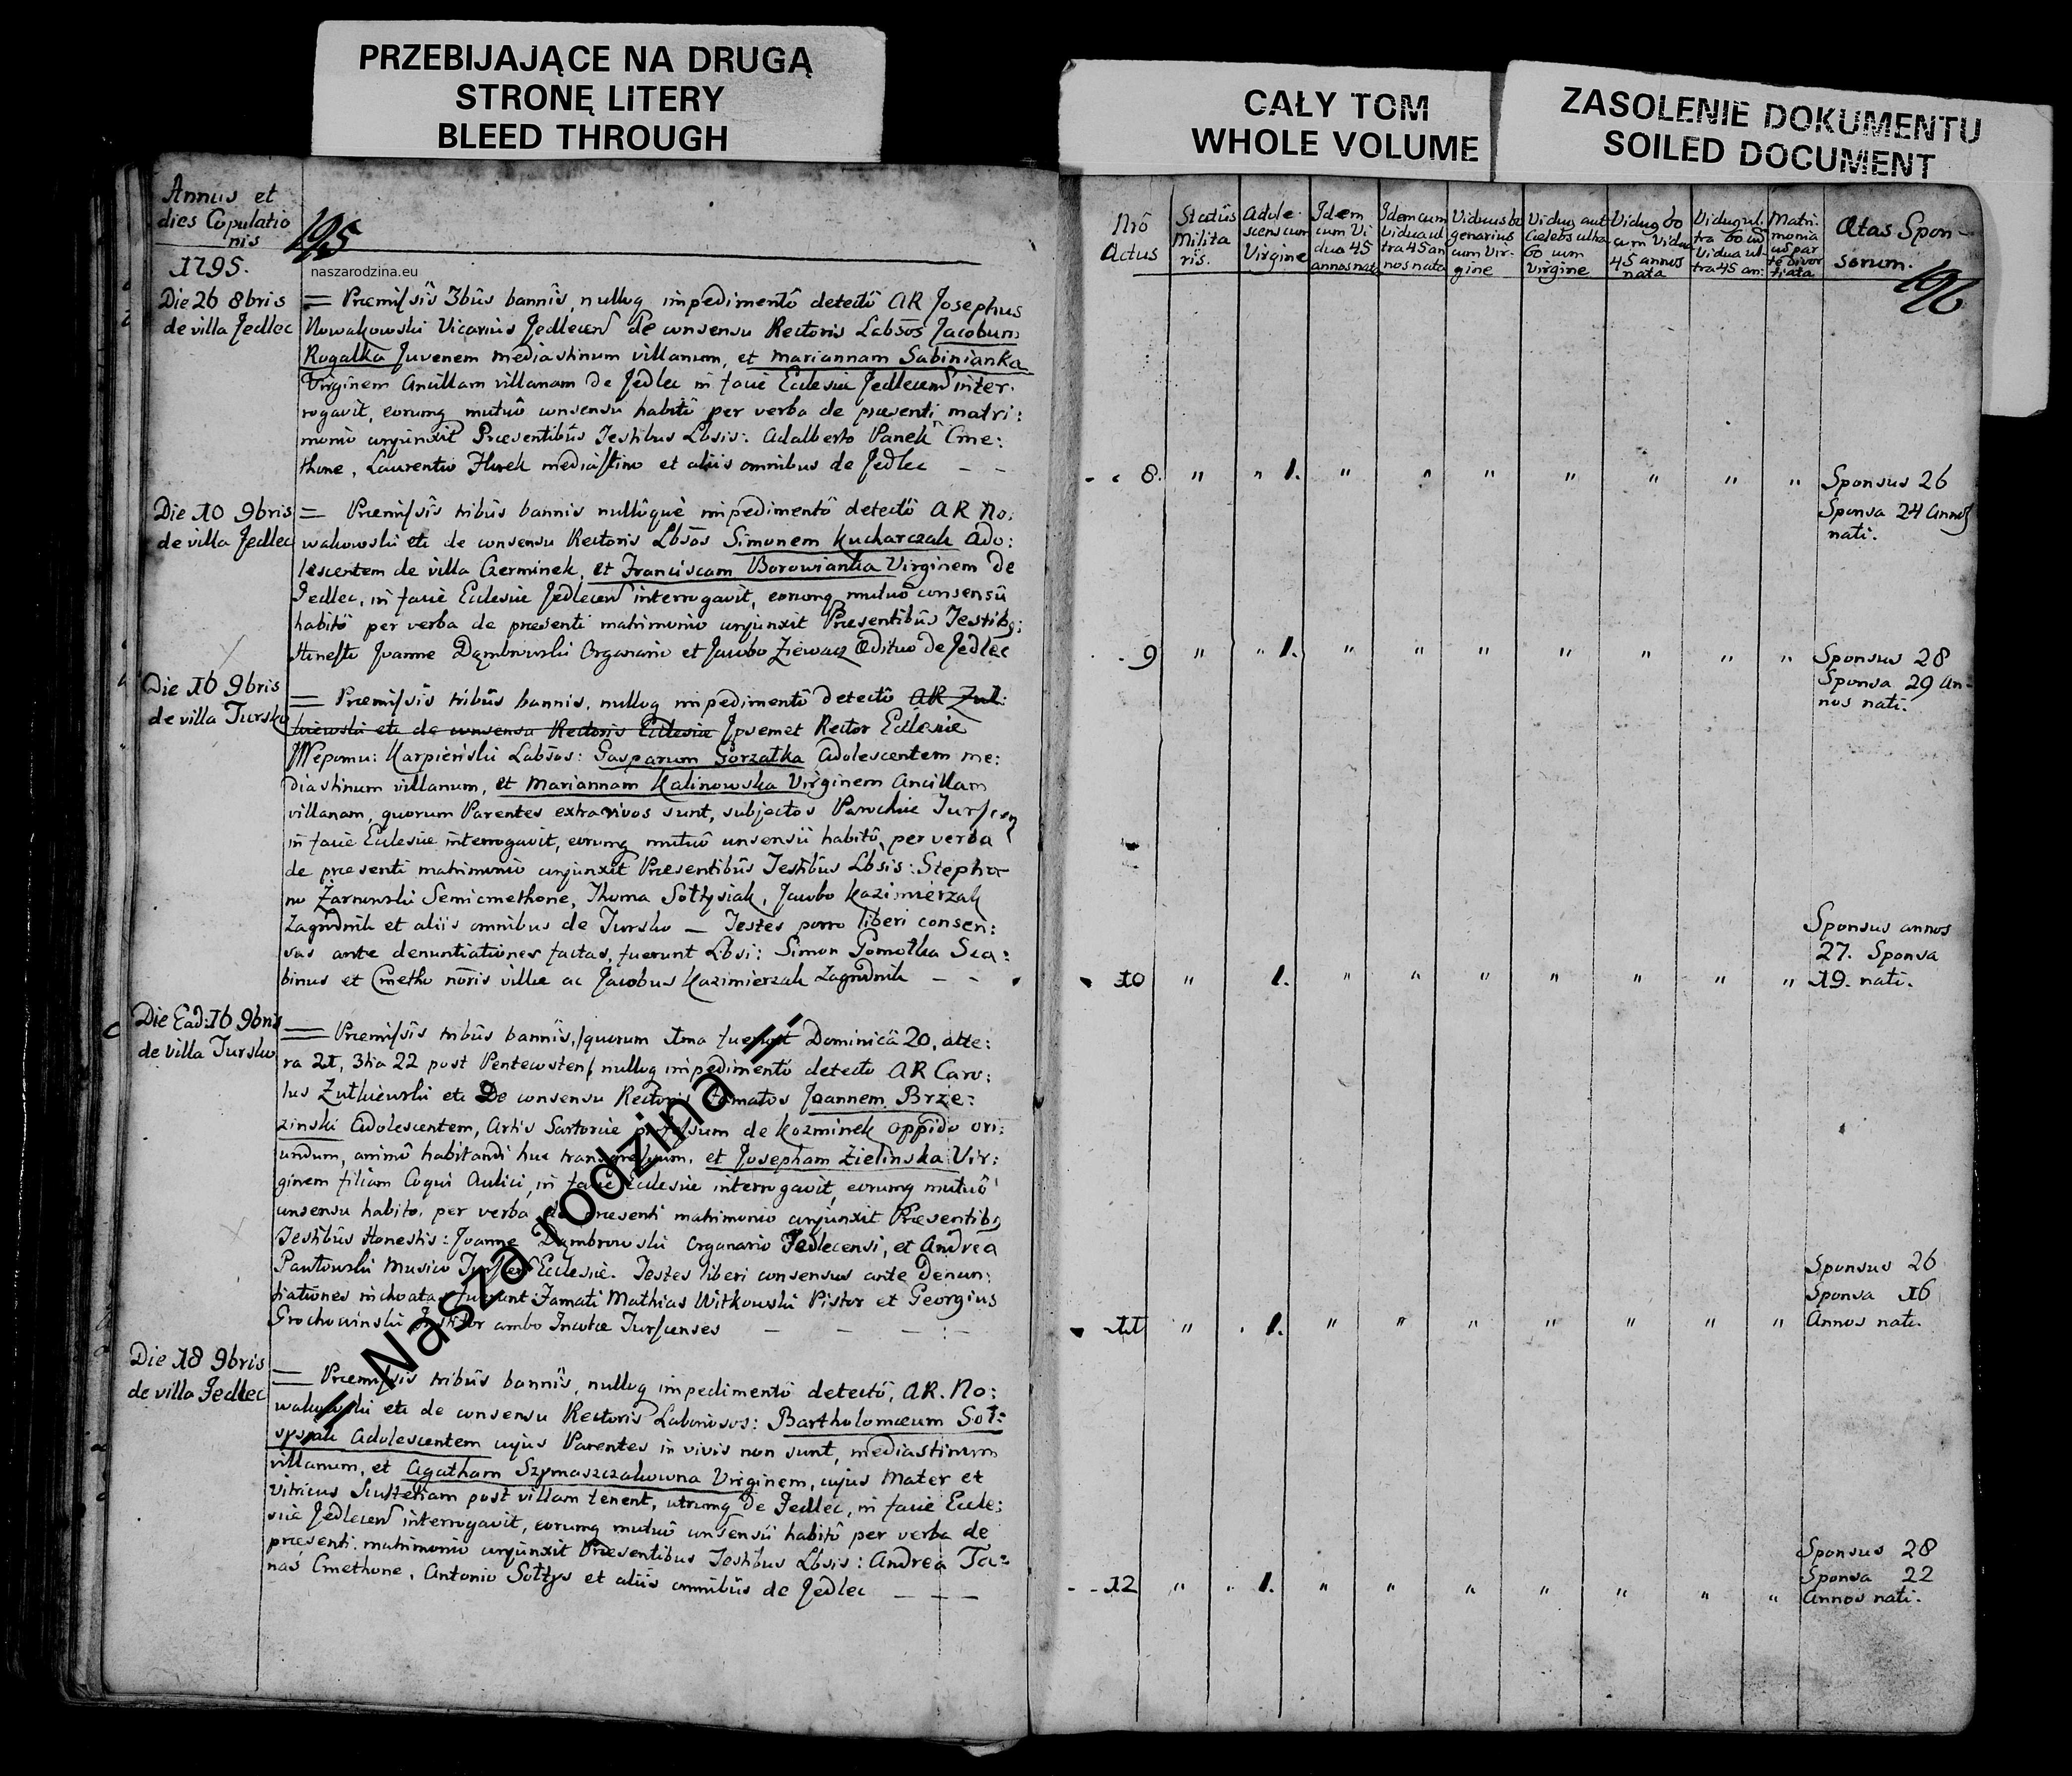 PRZEBIJAJĄCE NA DRUGĄ
STRONĘ LITERY
BLEED THROUGH
CAŁY TOM
WHOLE VOLUME
ZASOLENIE DOKUMENTU
SOILED DOCUMENT
Annus et
dies Copulatio
nis
195
1795.
naszarodzina.eu
Die 26 8bris
de villa Jedlec
= Præmissis 3bus bannis, nullog impedimentô detectô AR Josephus
Nowakowski Vicarius Jedlecen de consensu Rectoris Labsos Jacobum
Rogalka Juvenem mediastinum villanum, et Mariannam Sabinianka
Virginem Ancillam villanam de Jedlec in facie Eclesiæ Jedlecens inter.
rogavit, eorumq mutuô consensu habitô per verba de præsenti matri:
monio conjunxit Præsentibus Testibus Lbsis: Adalberto Panek Cme:
thone, Laurentio Hurek mediastino et aliis omnibus de Jedlec – –
Die 10 9bris
de villa Jedlec
= Præmissis tribus bannis nullôquè impedimentô detectô AR No:
wakowski etc de consensu Rectoris Lbsos Simonem Kucharczak Ado:
lescentem de villa Czerminek, et Franciscam Borowianka Virginem de
Jedlec, in facie Eclesiæ Jedlecen interrogavit, eorumq mutuô consensû
habitô per verba de præsenti matrimonio conjunxit Præsentibus Testibq:
Honesto Joanne Dąmbrowski Organario et Jacobo Ziewacz Ædituo de Jedlec
Die 16 9bris
de villa Tursko
= Præmissis tribus bannis, nullog impedimentô detectô AR Zul:
kiewski etc de consensu Rectoris Eclesiæ Ipsemet Rector Eclesiæ
Nepomu: Karpieński Labsos: Gasparum Gorzałka Adolescentem me:
diastinum villanum, et Mariannam Kalinowska Virginem Ancillam
villanam, quorum Parentes extra vivos sunt, subjectos Parochiæ Turscen
in facie Eclesiæ interrogavit, eorumq mutuô consensû habitô, per verba
de præsenti matrimonio conjunxit Præsentibus Testibus Lbsis: Stepha
no Żarnowski Semicmethone, Thoma Sołtysiak, Jacobo Kazimierzak
Zagrodnik et aliis omnibus de Tursko – Testes porro liberi consen:
sus ante denuntiationes factas, fuerunt Lbsi: Simon Gomołka Sca:
binus et Cmetho noris villæ ac Jacobus Kazimierzak Zagrodnik – –
Die Ead: 16 9bris
de villa Tursko
= Præmissis tribus bannis, /quorum 1ma fuerunt Dominicâ 20, alte:
ra 21, 3tia 22 post Pentecosten/ nullog impedimentô detecto AR Caro:
lus Zulkiewski etc De consensu Rectoris Famatos Joannem Brze:
zinski Adolescentem, Artis Sartoriæ professum de Kozminek oppido ori:
undum, animô habitandi huc transgressum, et Josepham Zielinska Vir:
ginem filiam Coqui Aulici, in facie Eclesiæ interrogavit, eorumq mutuô
consensu habito, per verba de præsenti matrimonio conjunxit Præsentibq
Testibus Honestis: Joanne Dąmbrowski Organario Jedlecensi, et Andrea
Pawłowski Musico Turscen Eclesiæ. Testes liberi consensus ante Denun:
tiationes inchoatas fuerunt Famati Mathias Witkowski Pistor et Georgius
Grochowinski ambo Incolæ Turscenses – – – –
Die 18 9bris
de villa Jedlec
= Præmissis tribus bannis, nullog impedimentô detectô, AR. No:
wakowski etc de consensu Rectoris Laboriosos: Bartholomæum Soł:
tysiak Adolescentem cujus Parentes in vivis non sunt, mediastinum
villanum, et Agatham Szymaszczakowna Virginem, cujus Mater et
vitricus post villam tenent, utrumq de Jedlec, in facie Eccle:
siæ Jedlecen interrogavit, eorumq mutuô consensû habitô per verba de
præsenti matrimonio conjunxit Præsentibus Testibus Lbsis: Andrea Ta:
nas Cmethone, Antonio Sołtys et aliis omnibus de Jedlec – – –
// Nasza rodzina //
Nrô Actus
Status Militaris.
Adolescens cum Virgine
Idem cum Vidua 45 annos nata
Idem cum Vidua ultra 45 annos nata
Viduus 60 genarius cum Virgine
Viduus aut Cælebs ultra 60 cum Virgine
Viduus 60 cum Vidua 45 annos nata
Viduus ultra 60 cum Vidua ultra 45 an:
Matrimonia
Ætas Sponsorum.
196
8. " " 1. " " " " " " "
Sponsus 26
Sponsa 24 Annos
nati.
9 " " 1. " " " " " " "
Sponsus 28
Sponsa 29 An-
nos nati.
Sponsus annos
27. Sponsa
10 " 1. " " " " " " " 19. nati.
Sponsus 26
Sponsa 16
11 " 1. " " " " " " " Annos nati.
Sponsus 28
Sponsa 22
12 " " 1. " " " " " " " Annos nati.